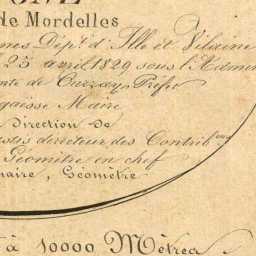 de Mordelles
nes Dép.t d'Ille et Vilaine
25 avril 1829 sous l'Admin
te de Curzay, Préfet
gaisse Maire
direction de
directeur des Contrib.ons
Géomètre en chef
naire, Géomètre
à 10000 Mètres